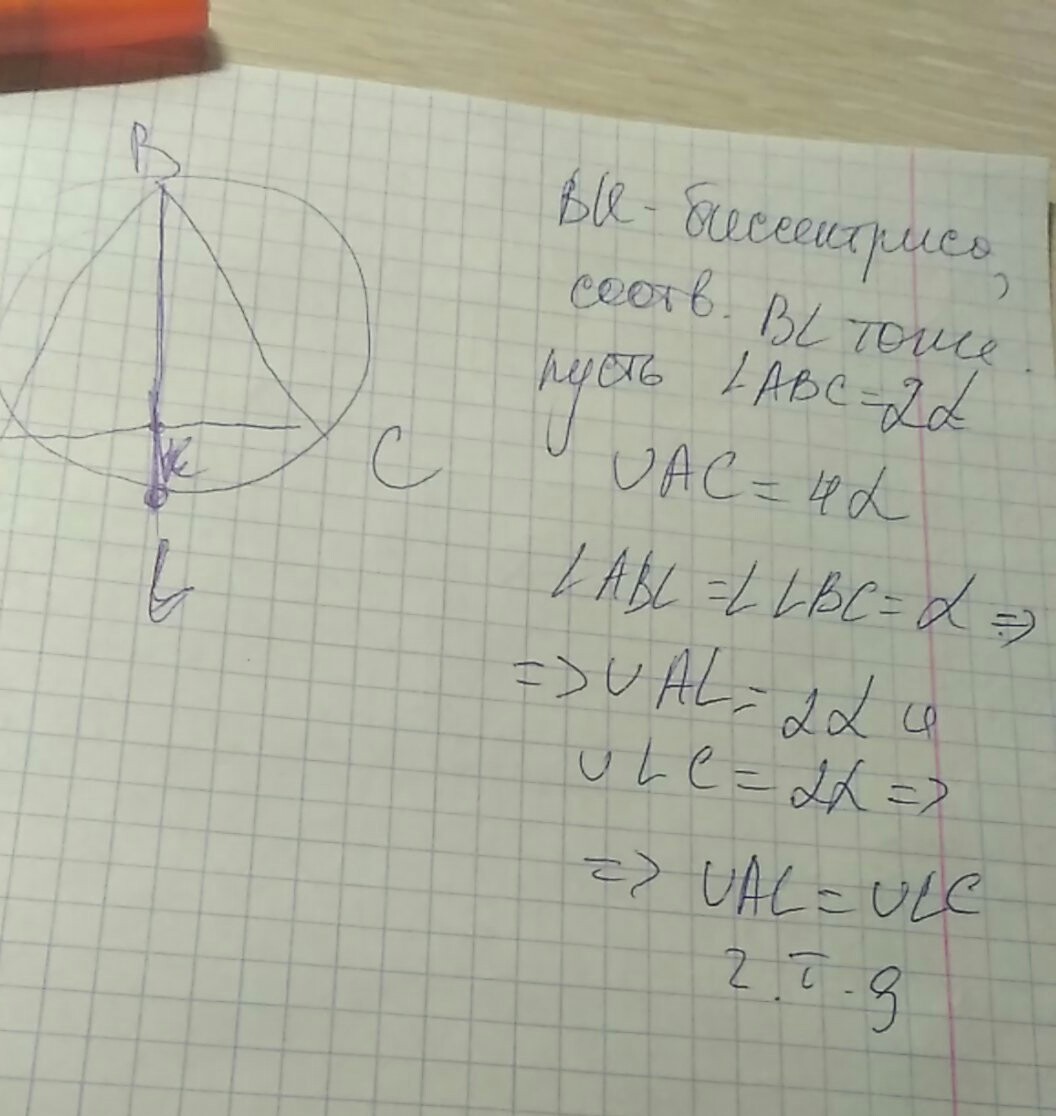 B
K
C
L
BK - биссектриса,
соотв. BL тоже.
пусть ∠ABC = 2α
∪AC = 4α
∠ABL = ∠LBC = α =>
=> ∪AL = 2α и
∪LC = 2α =>
=> ∪AL = ∪LC
ч.т.д